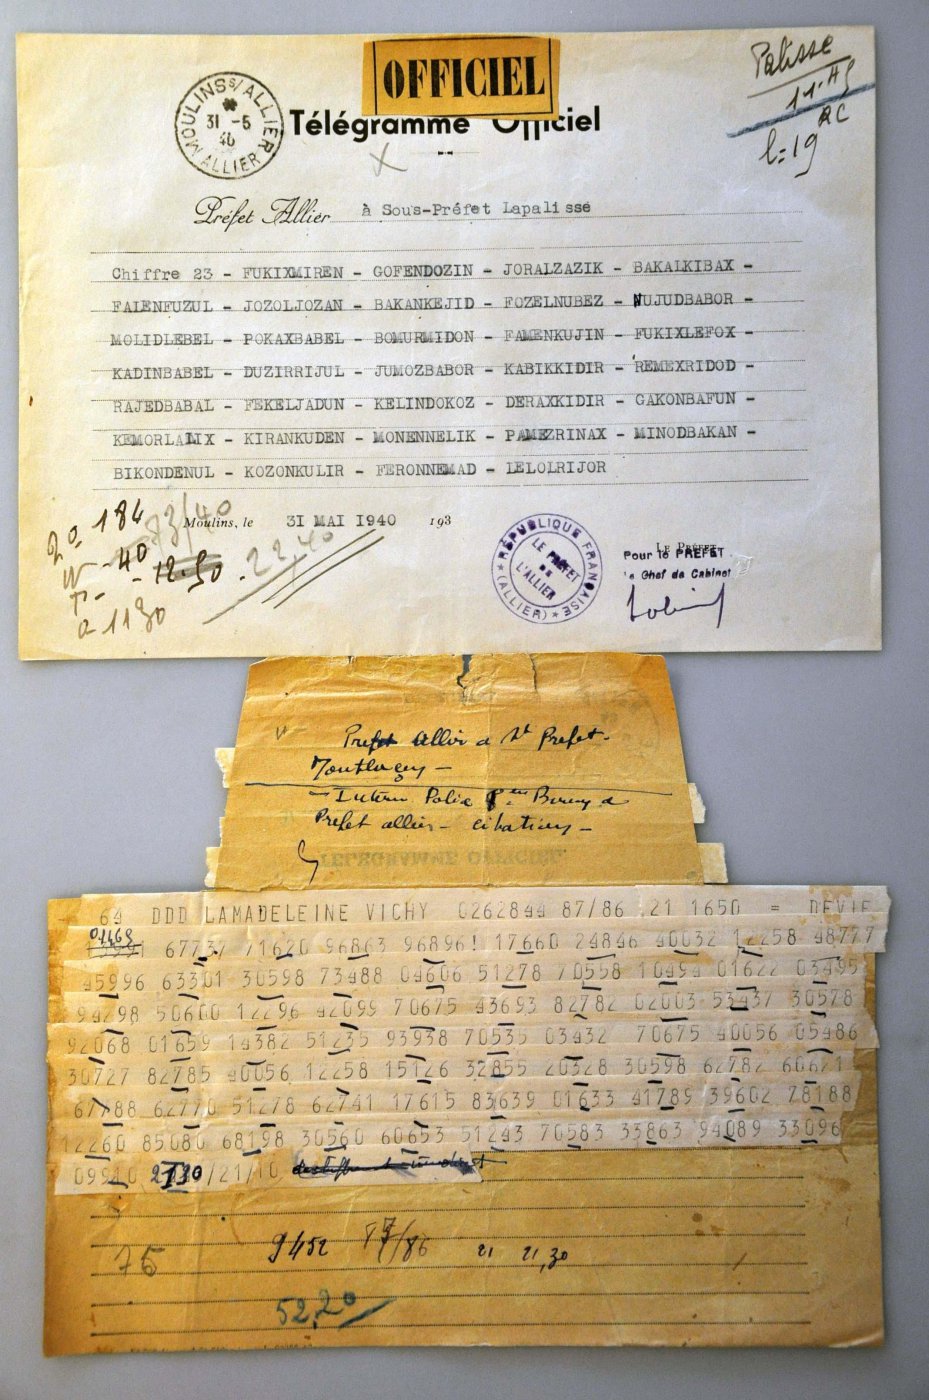 OFFICIEL
Palisse
11.45
l=19
MOULINS S/ALLIER
31 -5
40
ALLIER
Télégramme Officiel
Préfet Allier à Sous-Préfet Lapalisse
Chiffre 23 - FUKIXMIREN - GOFENDOZIN - JORALZAZIK - BAKALKIBAX -
FALENFUZUL - JOZOLJOZAN - BAKANKEJID - FOZELNUBEZ - NUJUDBABOR -
MOLIDLEBEL - POKAXBABEL - BOMURMIDON - FAMENKUJIN - FUKIXLEFOX -
KADINBABEL - DUZIRRIJUL - JUMOZBABOR - KABIKKIDIR - REMEXRIDOD -
RAJEDBABAL - FEKELJADUN - KELINDOKOZ - DERAXKIDIR - GAKONBAFUN -
KEMORLALIX - KIRANKUDEN - MONENNELIK - PAMEZRINAX - MINODBAKAN -
BIKONDENUL - KOZONKULIR - FERONNEMAD - LELOLRIJOR
Moulins, le 31 MAI 1940 193
83/40
20 - 184
- 40
- 12.50
22.40
a 1130
RÉPUBLIQUE FRANÇAISE
LE PRÉFET
L'ALLIER
(ALLIER)
LE PRÉFET
Pour le PREFET
Le Chef de Cabinet
Prefet Allier a St Prefet
Police
Prefet allier -
TELEGRAMME OFFICIEL
64 DDD LAMADELEINE VICHY 0262844 87/86 21 1650 = DEVIE
01469
67737 71620 96863 96896! 17660 24846 40032 12258 48777
45996 63301 30598 73488 04606 51278 70558 10494 01622 03495
94298 50600 12296 42099 70675 43693 82782 02003 53437 30578
92068 01659 14382 51235 93938 70535 03432 70675 40056 05486
30727 82785 40056 12258 15126 32855 20328 30598 62782 60671
67788 62770 51278 62741 17615 83639 01633 41789 39602 78188
12260 85080 68198 30560 60653 51243 70583 33863 94089 33096
09940 2130/21/10
75 9452 87/86 21 21,30
52,20